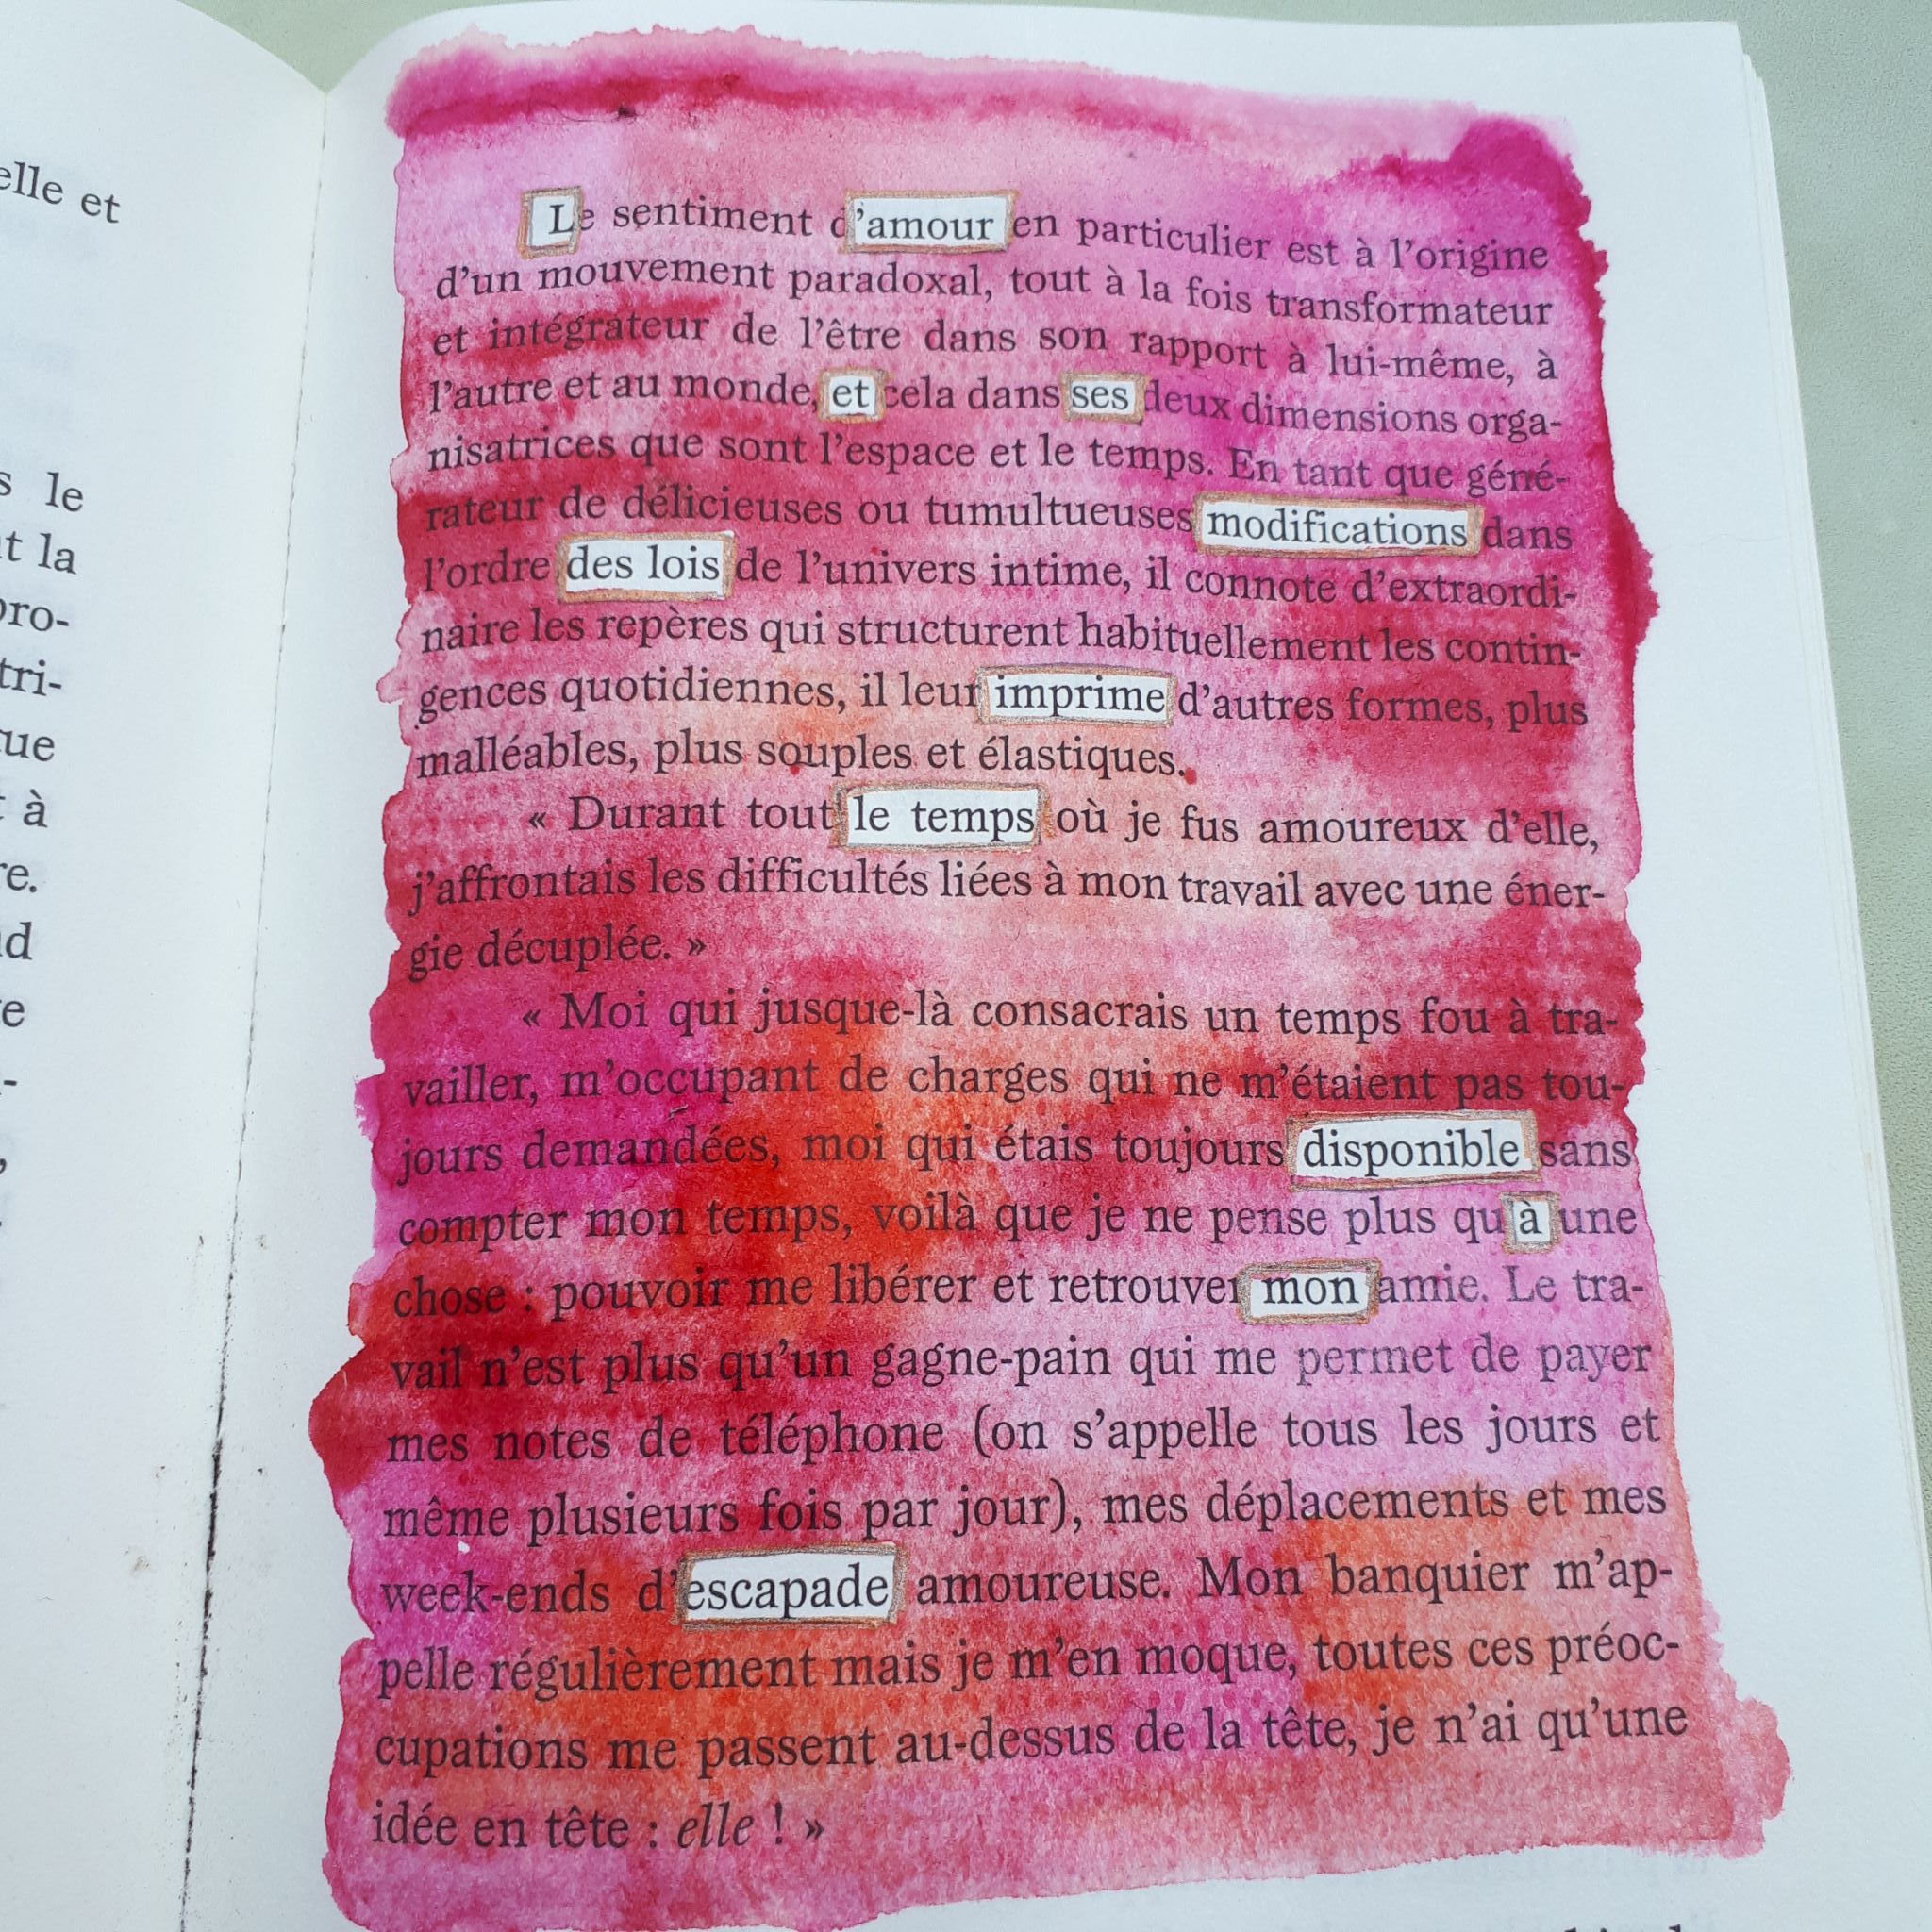 elle et
s le
t la
pro-
tri-
que
t à
re.
nd
e
-
,
.
Le sentiment d’amour en particulier est à l’origine
d’un mouvement paradoxal, tout à la fois transformateur
et intégrateur de l’être dans son rapport à lui-même, à
l’autre et au monde, et cela dans ses deux dimensions orga-
nisatrices que sont l’espace et le temps. En tant que géné-
rateur de délicieuses ou tumultueuses modifications dans
l’ordre des lois de l’univers intime, il connote d’extraordi-
naire les repères qui structurent habituellement les contin-
gences quotidiennes, il leur imprime d’autres formes, plus
malléables, plus souples et élastiques.
« Durant tout le temps où je fus amoureux d’elle,
j’affrontais les difficultés liées à mon travail avec une éner-
gie décuplée. »
« Moi qui jusque-là consacrais un temps fou à tra-
vailler, m’occupant de charges qui ne m’étaient pas tou-
jours demandées, moi qui étais toujours disponible sans
compter mon temps, voilà que je ne pense plus qu’à une
chose : pouvoir me libérer et retrouver mon amie. Le tra-
vail n’est plus qu’un gagne-pain qui me permet de payer
mes notes de téléphone (on s’appelle tous les jours et
même plusieurs fois par jour), mes déplacements et mes
week-ends d’escapade amoureuse. Mon banquier m’ap-
pelle régulièrement mais je m’en moque, toutes ces préoc-
cupations me passent au-dessus de la tête, je n’ai qu’une
idée en tête : elle ! »